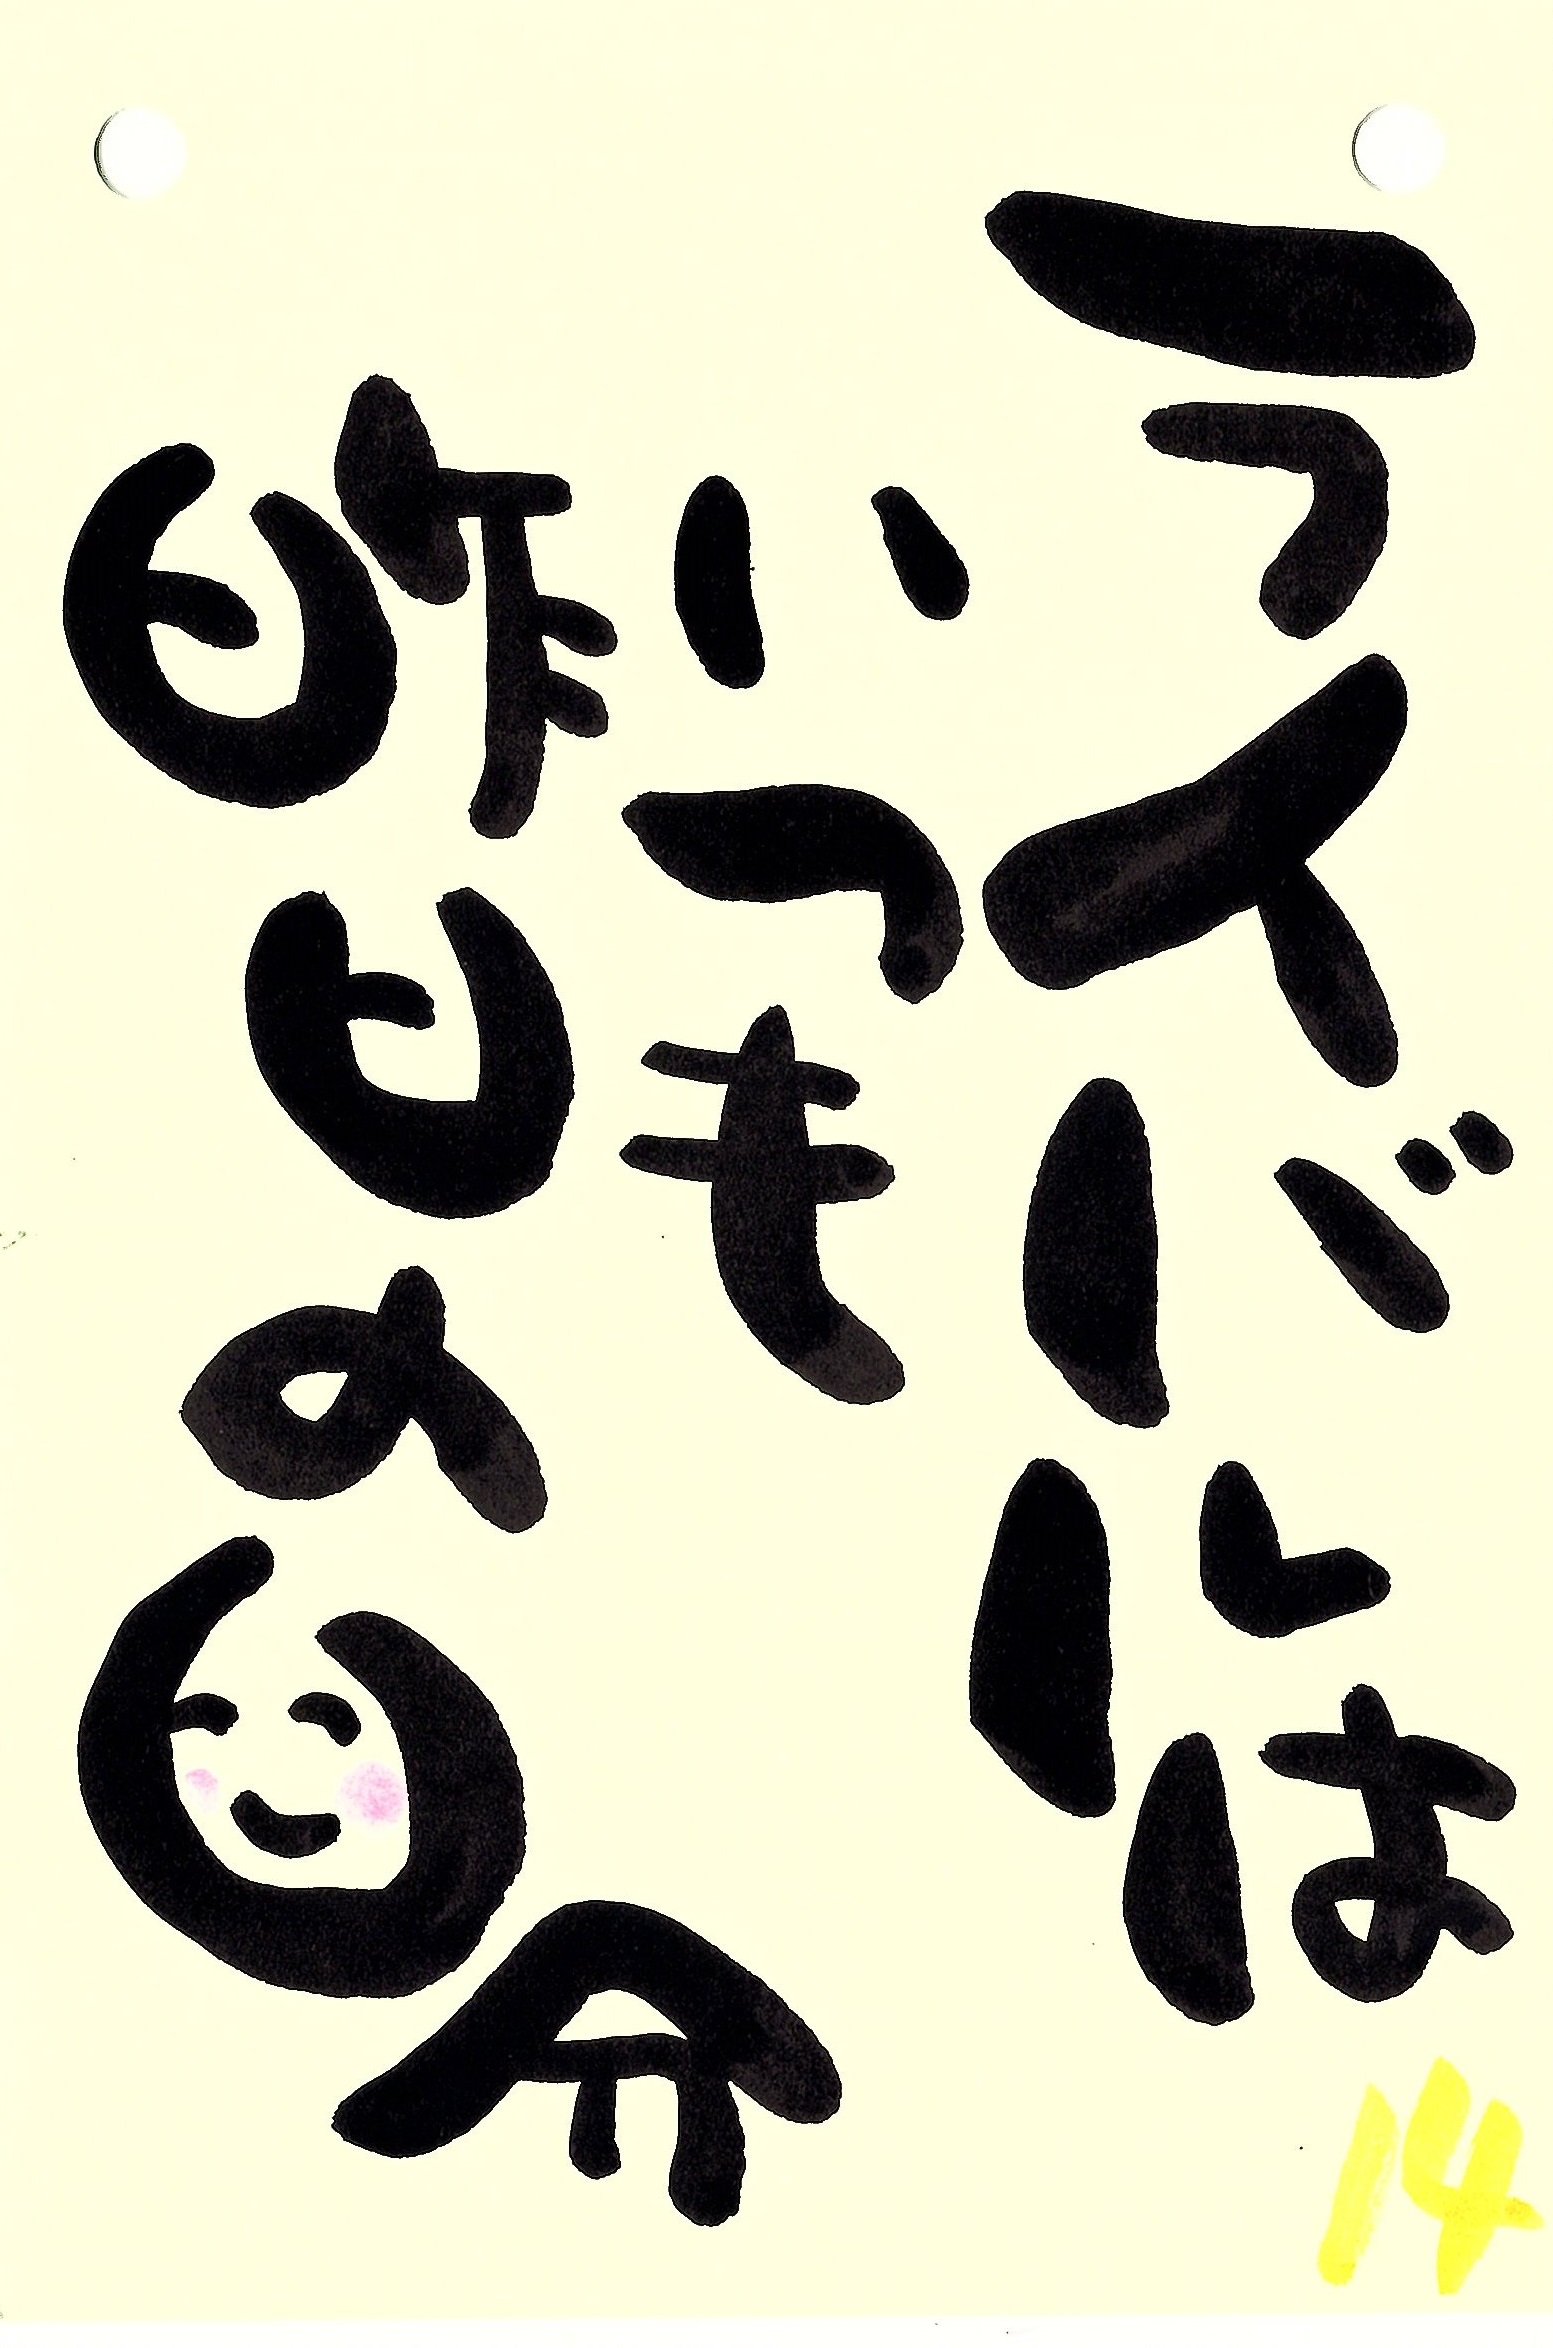 ライバルは
いつも
昨日の自分
14